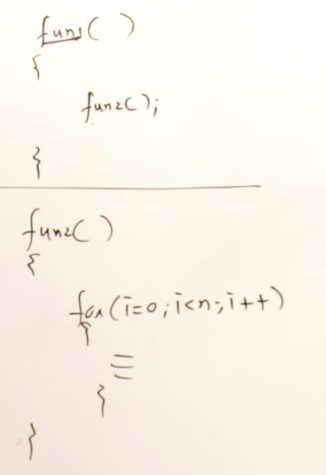 fun1( )
{
fun2();
}
fun2()
{
for(i=0;i<n;i++)
{
}
}